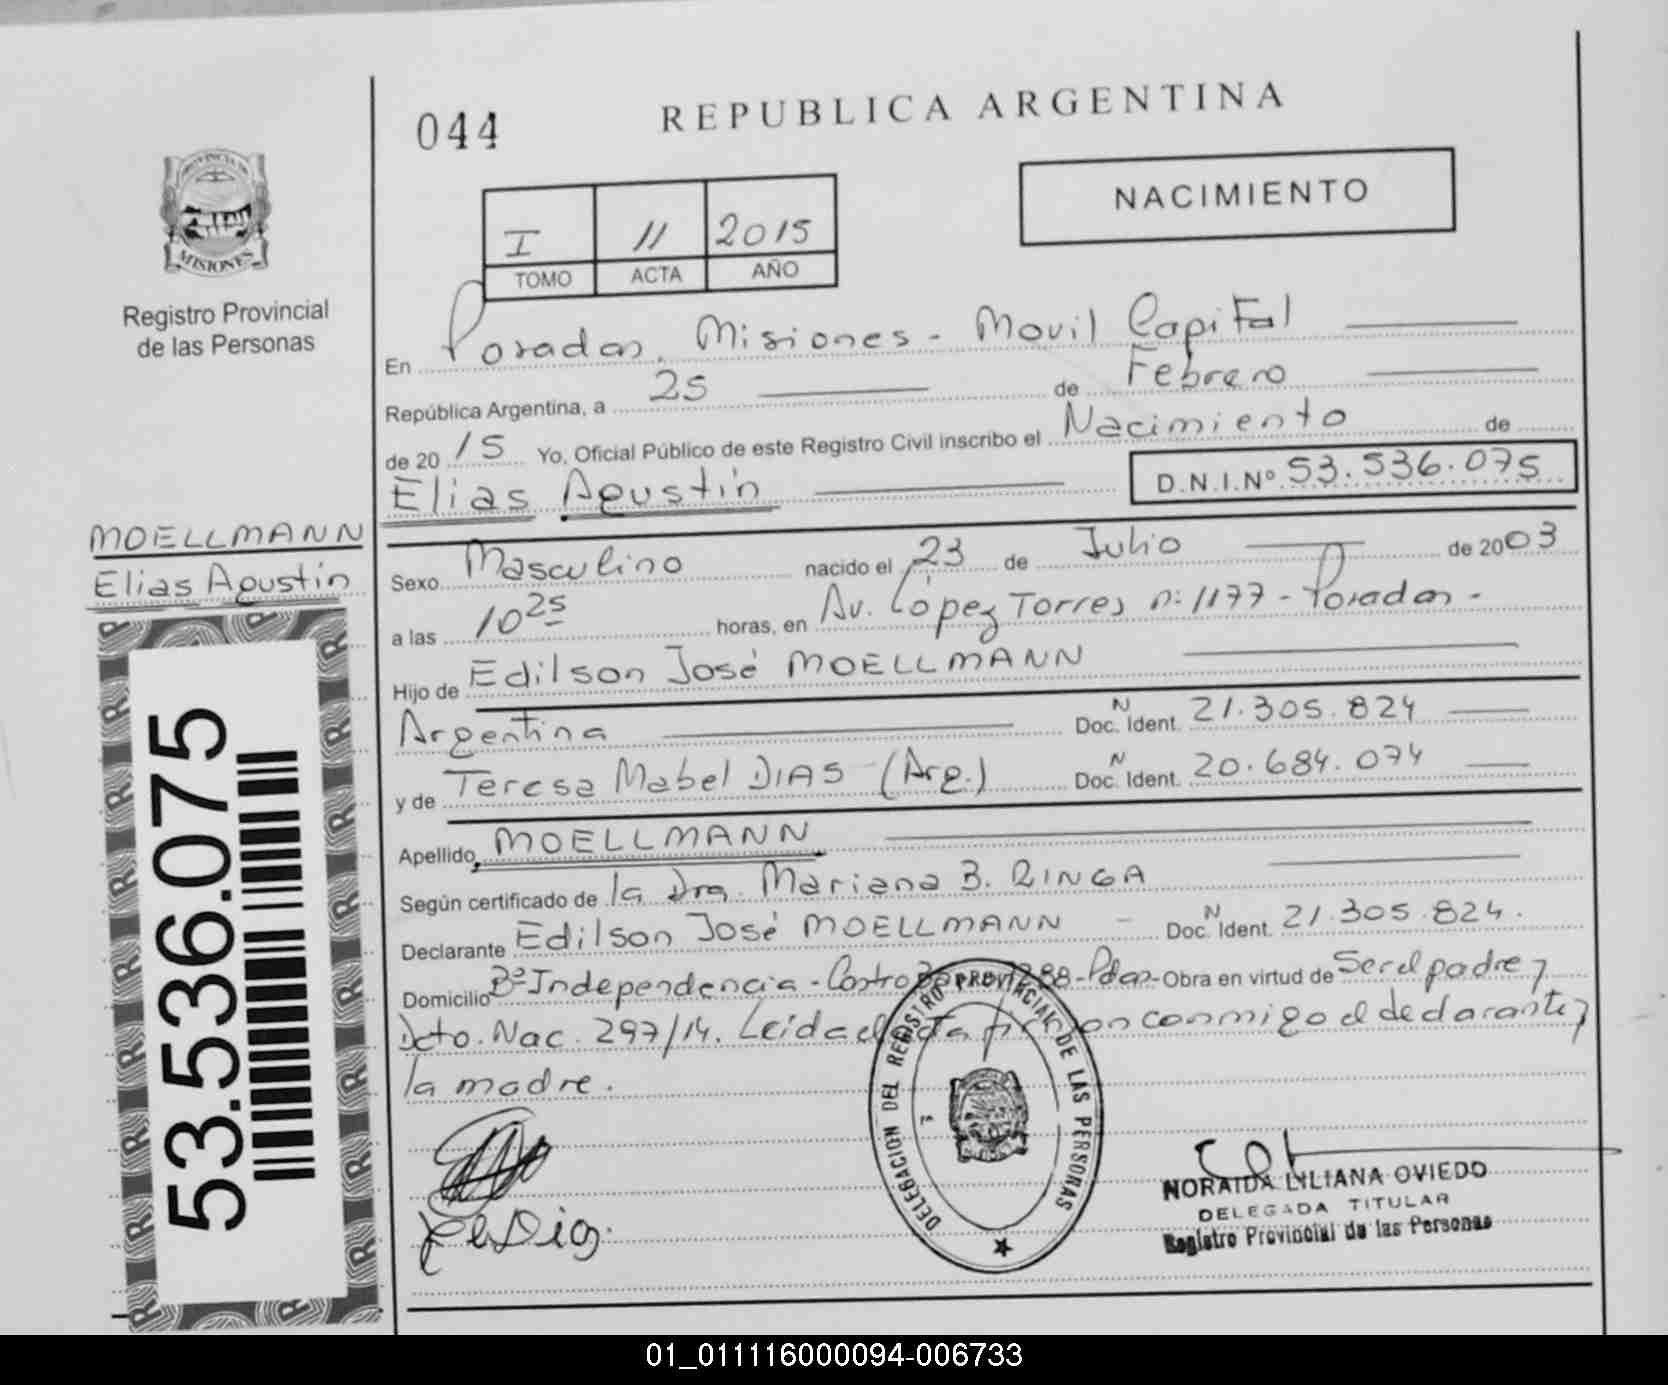 044
REPUBLICA ARGENTINA
NACIMIENTO
I 11 2015
TOMO ACTA AÑO
PROVINCIA DE
MISIONES
Registro Provincial
de las Personas
En Posadas, Misiones - Movil Capital
República Argentina, a 25 de Febrero
de 20 15 Yo, Oficial Público de este Registro Civil inscribo el Nacimiento de
Elias Agustin D.N.I.Nº 53.536.075
MOELLMANN
Elias Agustin
Sexo Masculino nacido el 23 de Julio de 2003
a las 10 25 horas, en Av. López Torres n: 1177 - Posadas -
Hijo de Edilson José MOELLMANN
Argentina Doc. N Ident. 21.305.824
y de Teresa Mabel DIAS (Arg.) Doc. N Ident. 20.684.074
Apellido MOELLMANN
Según certificado de la Dra. Mariana B. RINGA
Declarante Edilson José MOELLMANN - Doc. N Ident. 21.305.824.
Domicilio Bº Independencia - Castro - Pdas - Obra en virtud de Ser el padre y
Dcto. Nac. 297/14. Leida el conmigo el declarante y
la madre.
53.536.075
DELEGACION DEL REGISTRO PROVINCIAL DE LAS PERSONAS
NORAIDA LILIANA OVIEDO
DELEGADA TITULAR
Registro Provincial de las Personas
01_011116000094-006733